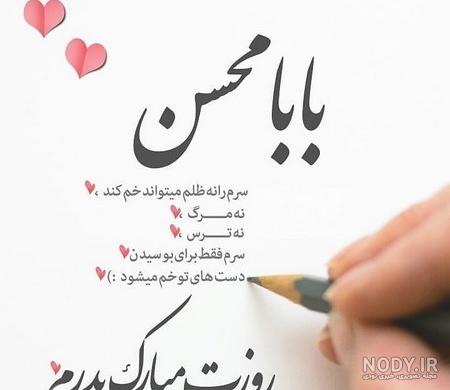 بابا محسن
سرم را نه ظلم میتواند خم کند ،
نه مــــرگ ،
نه تـــــرس ،
سرم فقط برای بوسیدن
دست های تو خم میشود :)
روزت مبارک پدرم
NODY.IR
مجله تصویری خبری نودی